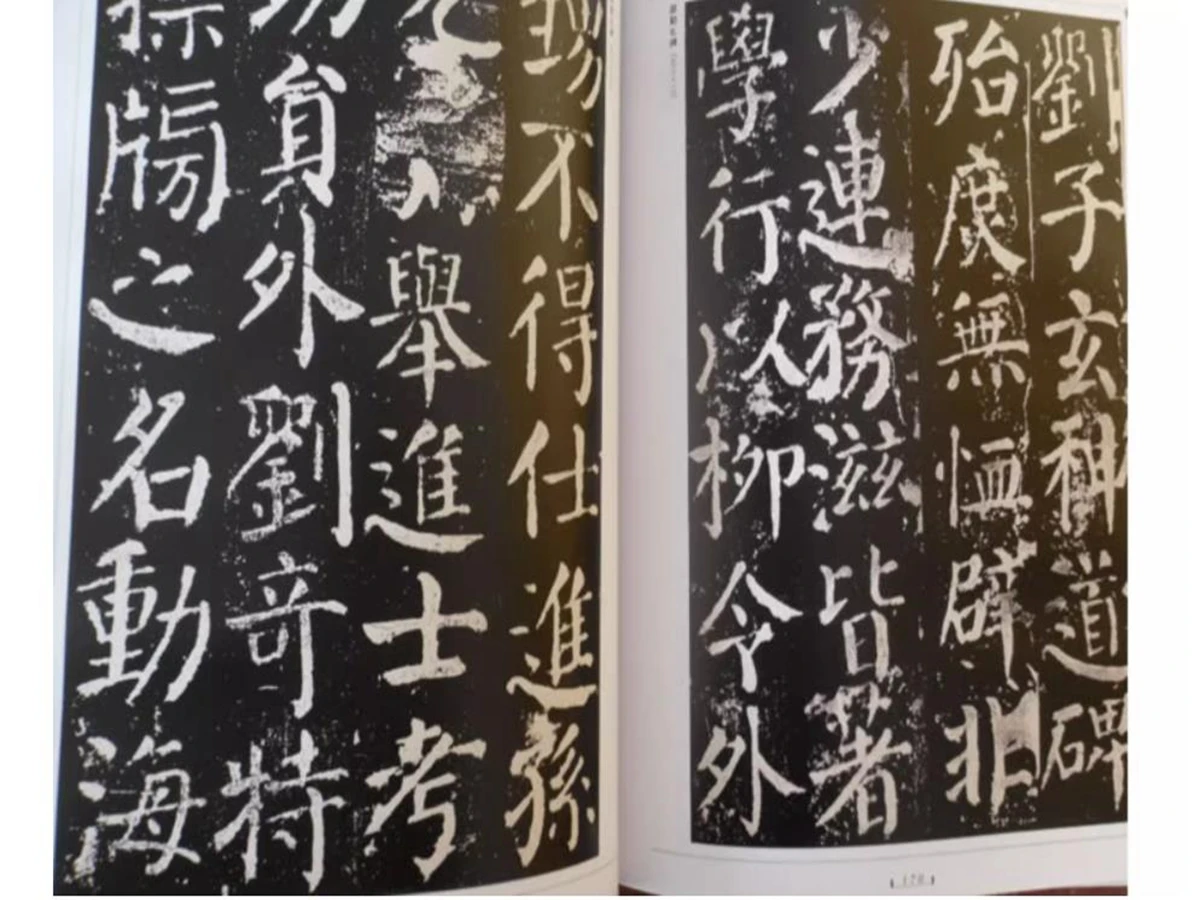 劉子玄神道碑
殆庶無恤辟非
少連務滋皆著
學行以柳令外
甥不得仕進孫
舉進士考
功貟外劉竒特
標牓之名動海
170